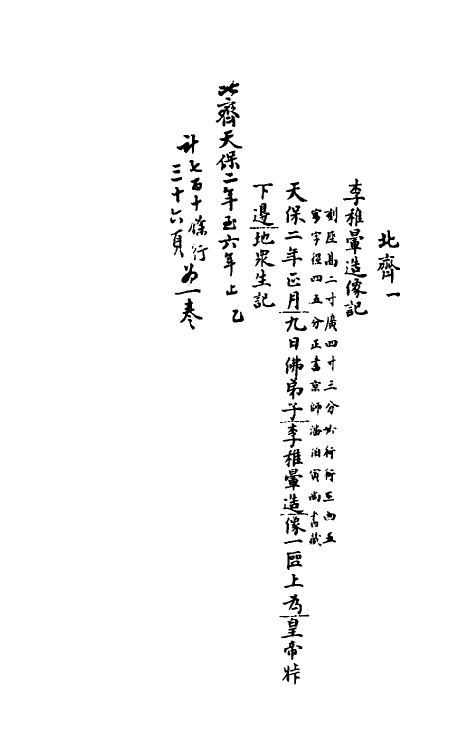 北齊一
李稚暈造像記
刻座高二寸廣四寸三分共行行三四五
字字徑四五分正書京師潘伯寅尚書藏
天保二年正月九日佛弟子李稚暈造像一區上為皇帝
下邊地眾生記
北齊天保二年至六年止
計七百十條行為一卷
三十六頁